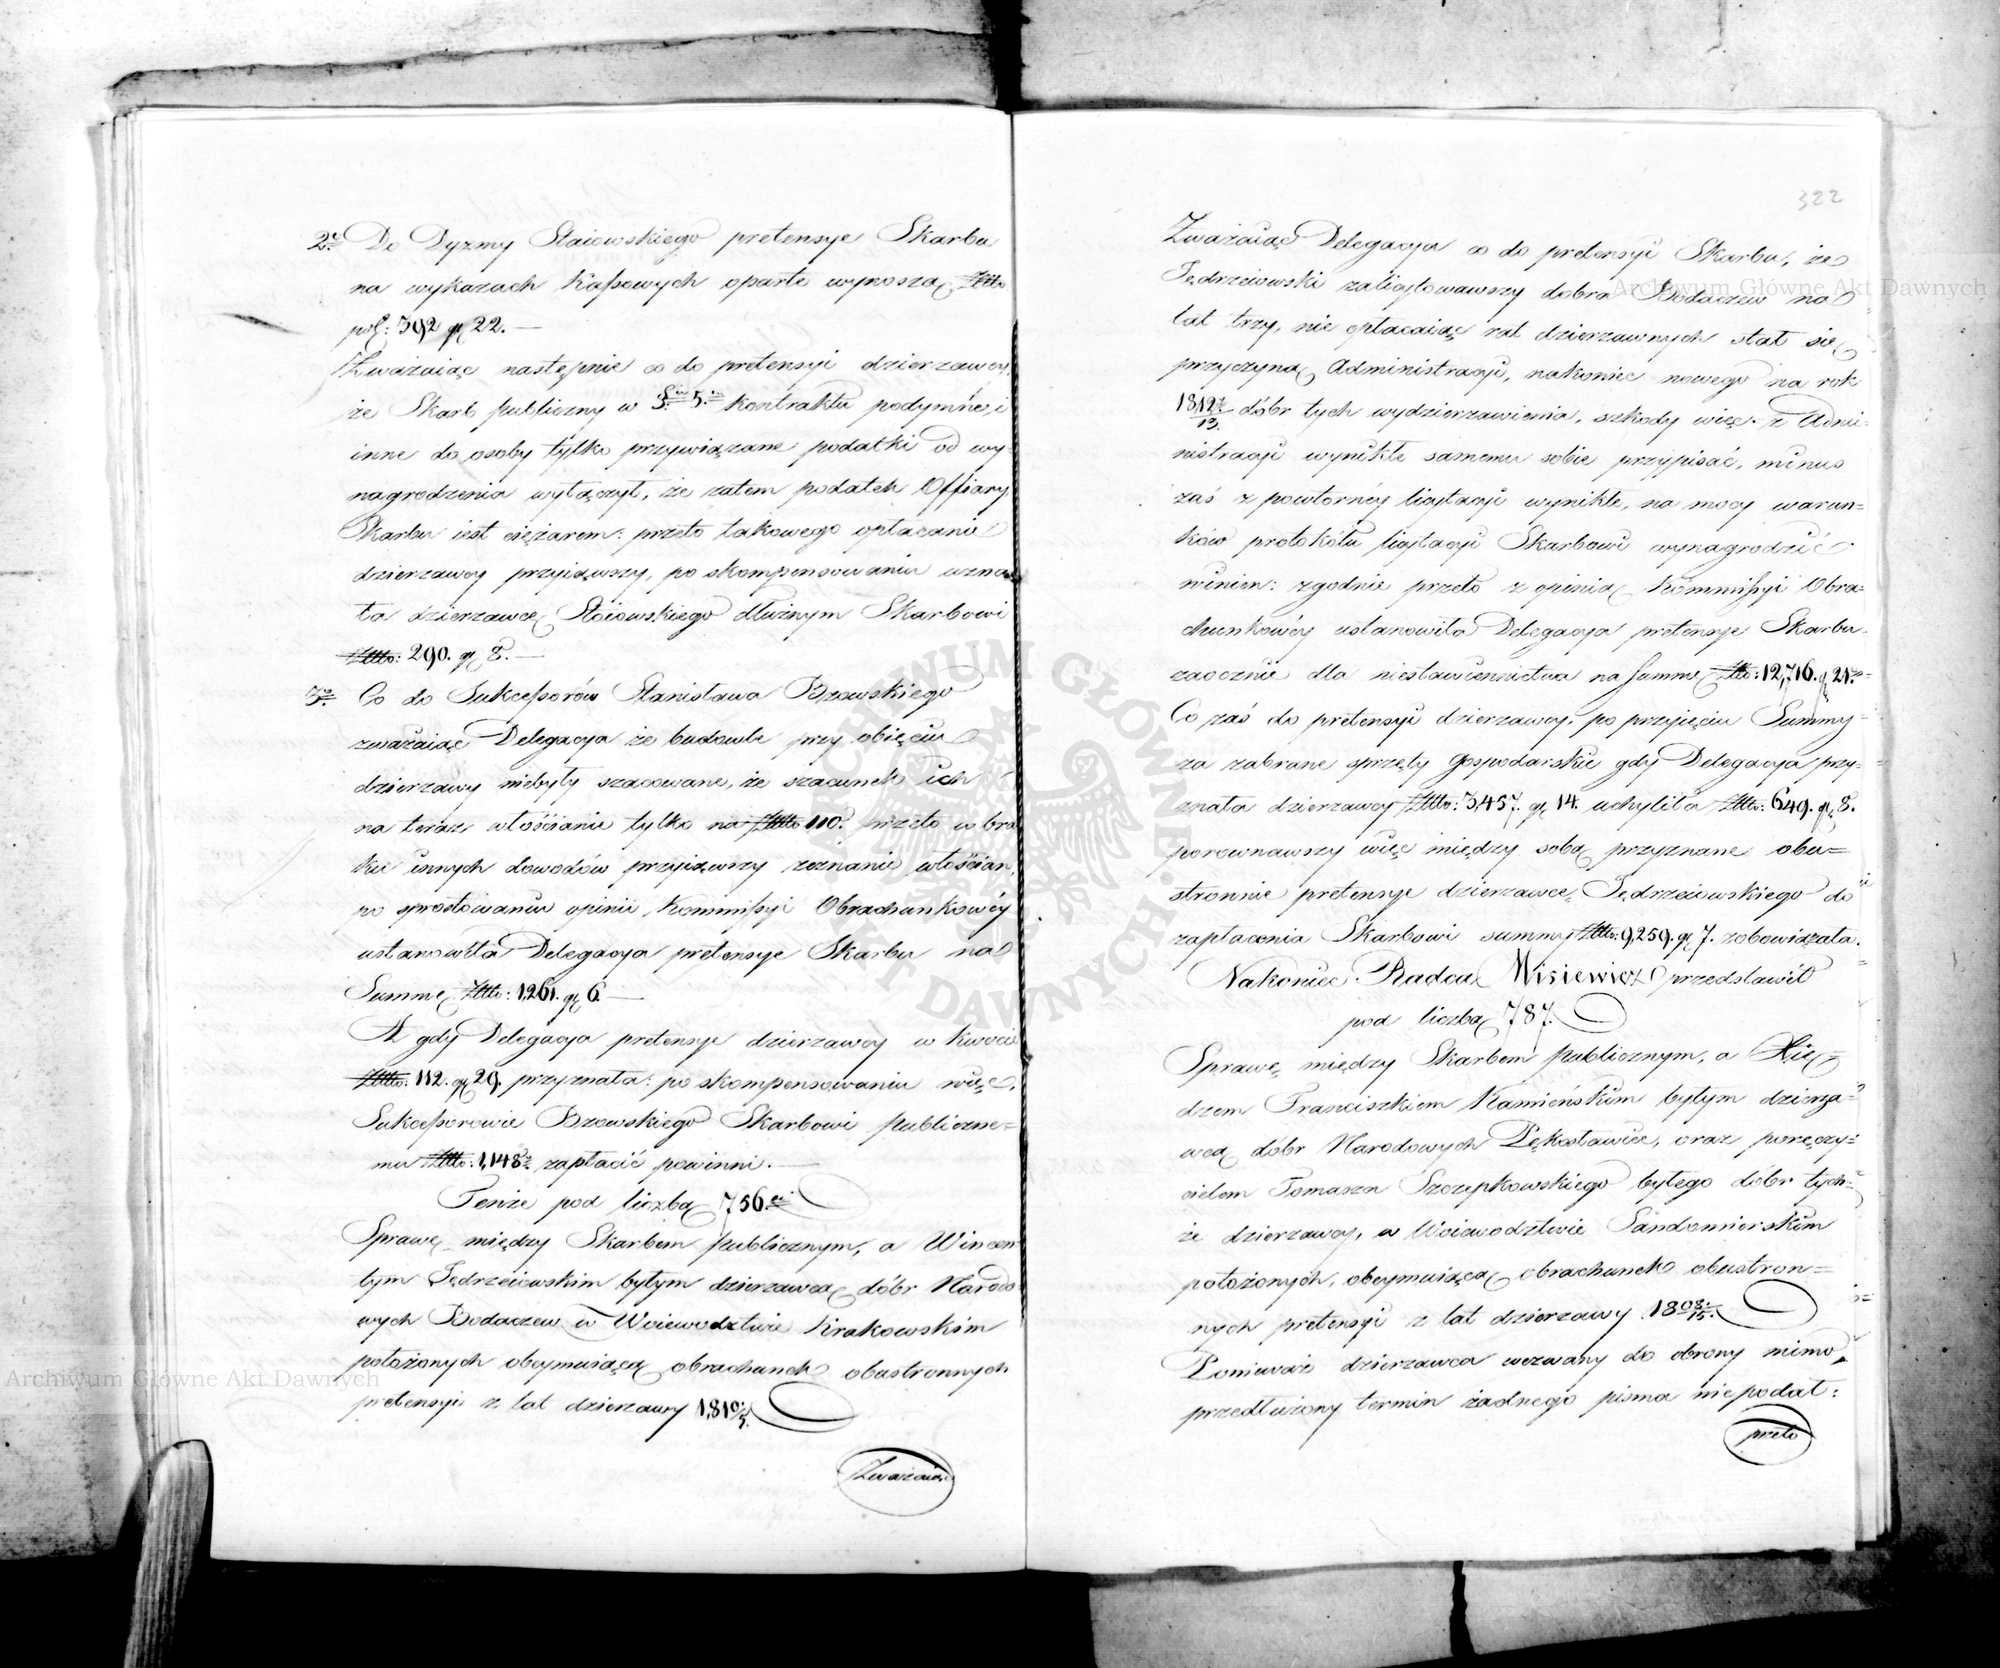 2º Do Dyzmy Stoiowskiego pretensye Skarbu
na wykazach Kassowych oparte wynoszą Złło
pol: 392 gr 22. —
Zważaiąc następnie co do pretensyi dzierzawcy,
że Skarb publiczny w §ie 5. kontraktu podymne, i
inne do osoby tylko przywiązane podatki od wy-
nagrodzenia wyłączył, że zatem podatek Offiary
Skarbu iest ciężarem: przeto takowego opłacanie
dzierzawcy przyiąwszy, po skompensowaniu uzna-
ła dzierzawcę Stoiowskiego dłużnym Skarbowi
Złło: 290. gr 8. —
3º Co do Sukcessorów Stanisława Bzowskiego
zważaiąc Delegacya że budowle przy obięciu
dzierzawy niebyły szacowane, że szacunek ich
na teraz włościanie tylko na Złło 110. przeto w bra-
ku innych dowodów przyiąwszy zeznanie włościan,
po sprostowaniu opinii Kommissyi Obrachunkowéy
ustanowiła Delegacya pretensye Skarbu na
Summę Złło: 1,261. gr 6. —
A gdy Delegacya pretensye dzierzawcy w kwocie
Złło: 112. gr 29. przyznała: po skompensowaniu więc,
Sukcessorowie Bzowskiego Skarbowi publiczne=
mu Złło: 1,148. zapłacić powinni. —
Tenże pod liczbą 756.
Sprawę między Skarbem publicznym, a Wincen-
tym Jędrzeiowskim byłym dzierzawcą dóbr Narodo-
wych Bodaczew w Woiewodztwie Krakowskim
położonych obeymuiącą obrachunek obustronnych
pretensyi z lat dzierzawy 1810/3.
Zważaiąc
322
Zważaiąc Delegacya co do pretensyi Skarbu, że
Jędrzeiowski zalicytowawszy dobra Bodaczew na
lat trzy, nie opłacaiąc rat dzierzawnych stał się
przyczyną Administracyi, nakoniec nowego na rok
1812/13. dóbr tych wydzierzawienia, szkody więc z Admi-
nistracyi wynikłe samemu sobie przypisać, minus
zaś z powtórnéy licytacyi wynikłe, na mocy warun=
ków protokółu licytacyi Skarbowi wynagrodzić
winien: zgodnie przeto z opinią Kommissyi Obra=
chunkowéy ustanowiła Delegacya pretensye Skarbu
zaocznie dla niestawiennictwa na summę Złło: 12,716. gr 21.
Co zaś do pretensyi dzierzawcy, po przyięciu Summy
za zabrane sprzęty gospodarskie gdy Delegacya przy-
znała dzierzawcy Złło: 3,457. gr 14. uchyliła Złło: 649. gr 8.
porównawszy więc między sobą przyznane obu=
stronnie pretensye dzierzawcę Jędrzeiowskiego do
zapłacenia Skarbowi summy Złło: 9,259. gr 7. zobowiązała.
Nakoniec Radca Wisiewicz przedstawił
pod liczbą 787.
Sprawę między Skarbem publicznym, a Xię=
dzem Franciszkiem Kamieńskim byłym dzierza=
wcą dóbr Narodowych Pękosławice, oraz poręczy=
cielem Tomasza Szczepkowskiego byłego dóbr tych=
że dzierzawcy, w Woiewodztwie Sandomierskim
położonych, obeymuiącą obrachunek obustron=
nych pretensyi z lat dzierzawy 1808/15.
Ponieważ dzierzawca wezwany do obrony mimo
przedłużony termin żadnego pisma niepodał:
przeto
Archiwum Główne Akt Dawnych
Archiwum Główne Akt Dawnych
ARCHIWUM GŁÓWNE AKT DAWNYCH